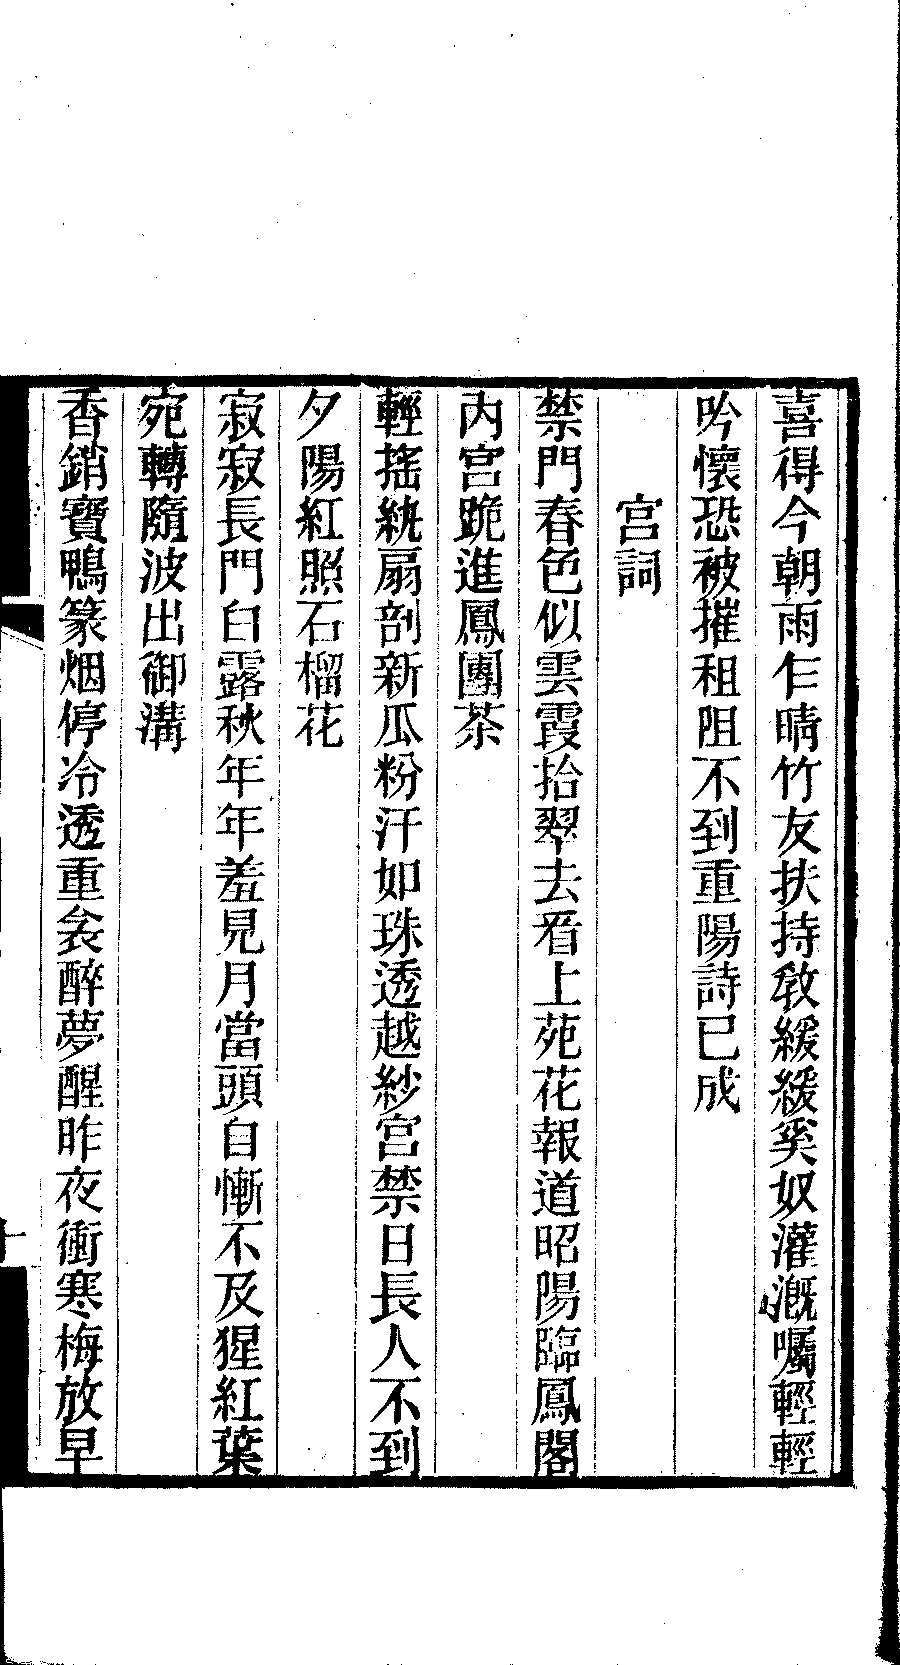 喜得今朝雨乍晴竹友扶持教緩緩奚奴灌溉囑輕輕
吟懷恐被摧租阻不到重陽詩已成
宮詞
禁門春色似雲霞拾翠去看上苑花報道昭陽臨鳳閣
內宮跪進鳳團茶
輕搖紈扇剖新瓜粉汗如珠透越紗宮禁日長人不到
夕陽紅照石榴花
寂寂長門白露秋年年羞見月當頭自慚不及猩紅葉
宛轉隨波出御溝
香銷寶鴨篆烟停冷透重衾醉夢醒昨夜衝寒梅放早